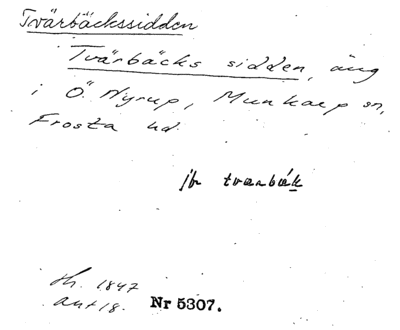 Tvärbäckssidden
Tvärbäcks sidden, äng
i Ö. Nyrup, Munkarp sn,
Frosta hd.
jfr tværbäk
sh. 1847
akt 18. Nr 5307.